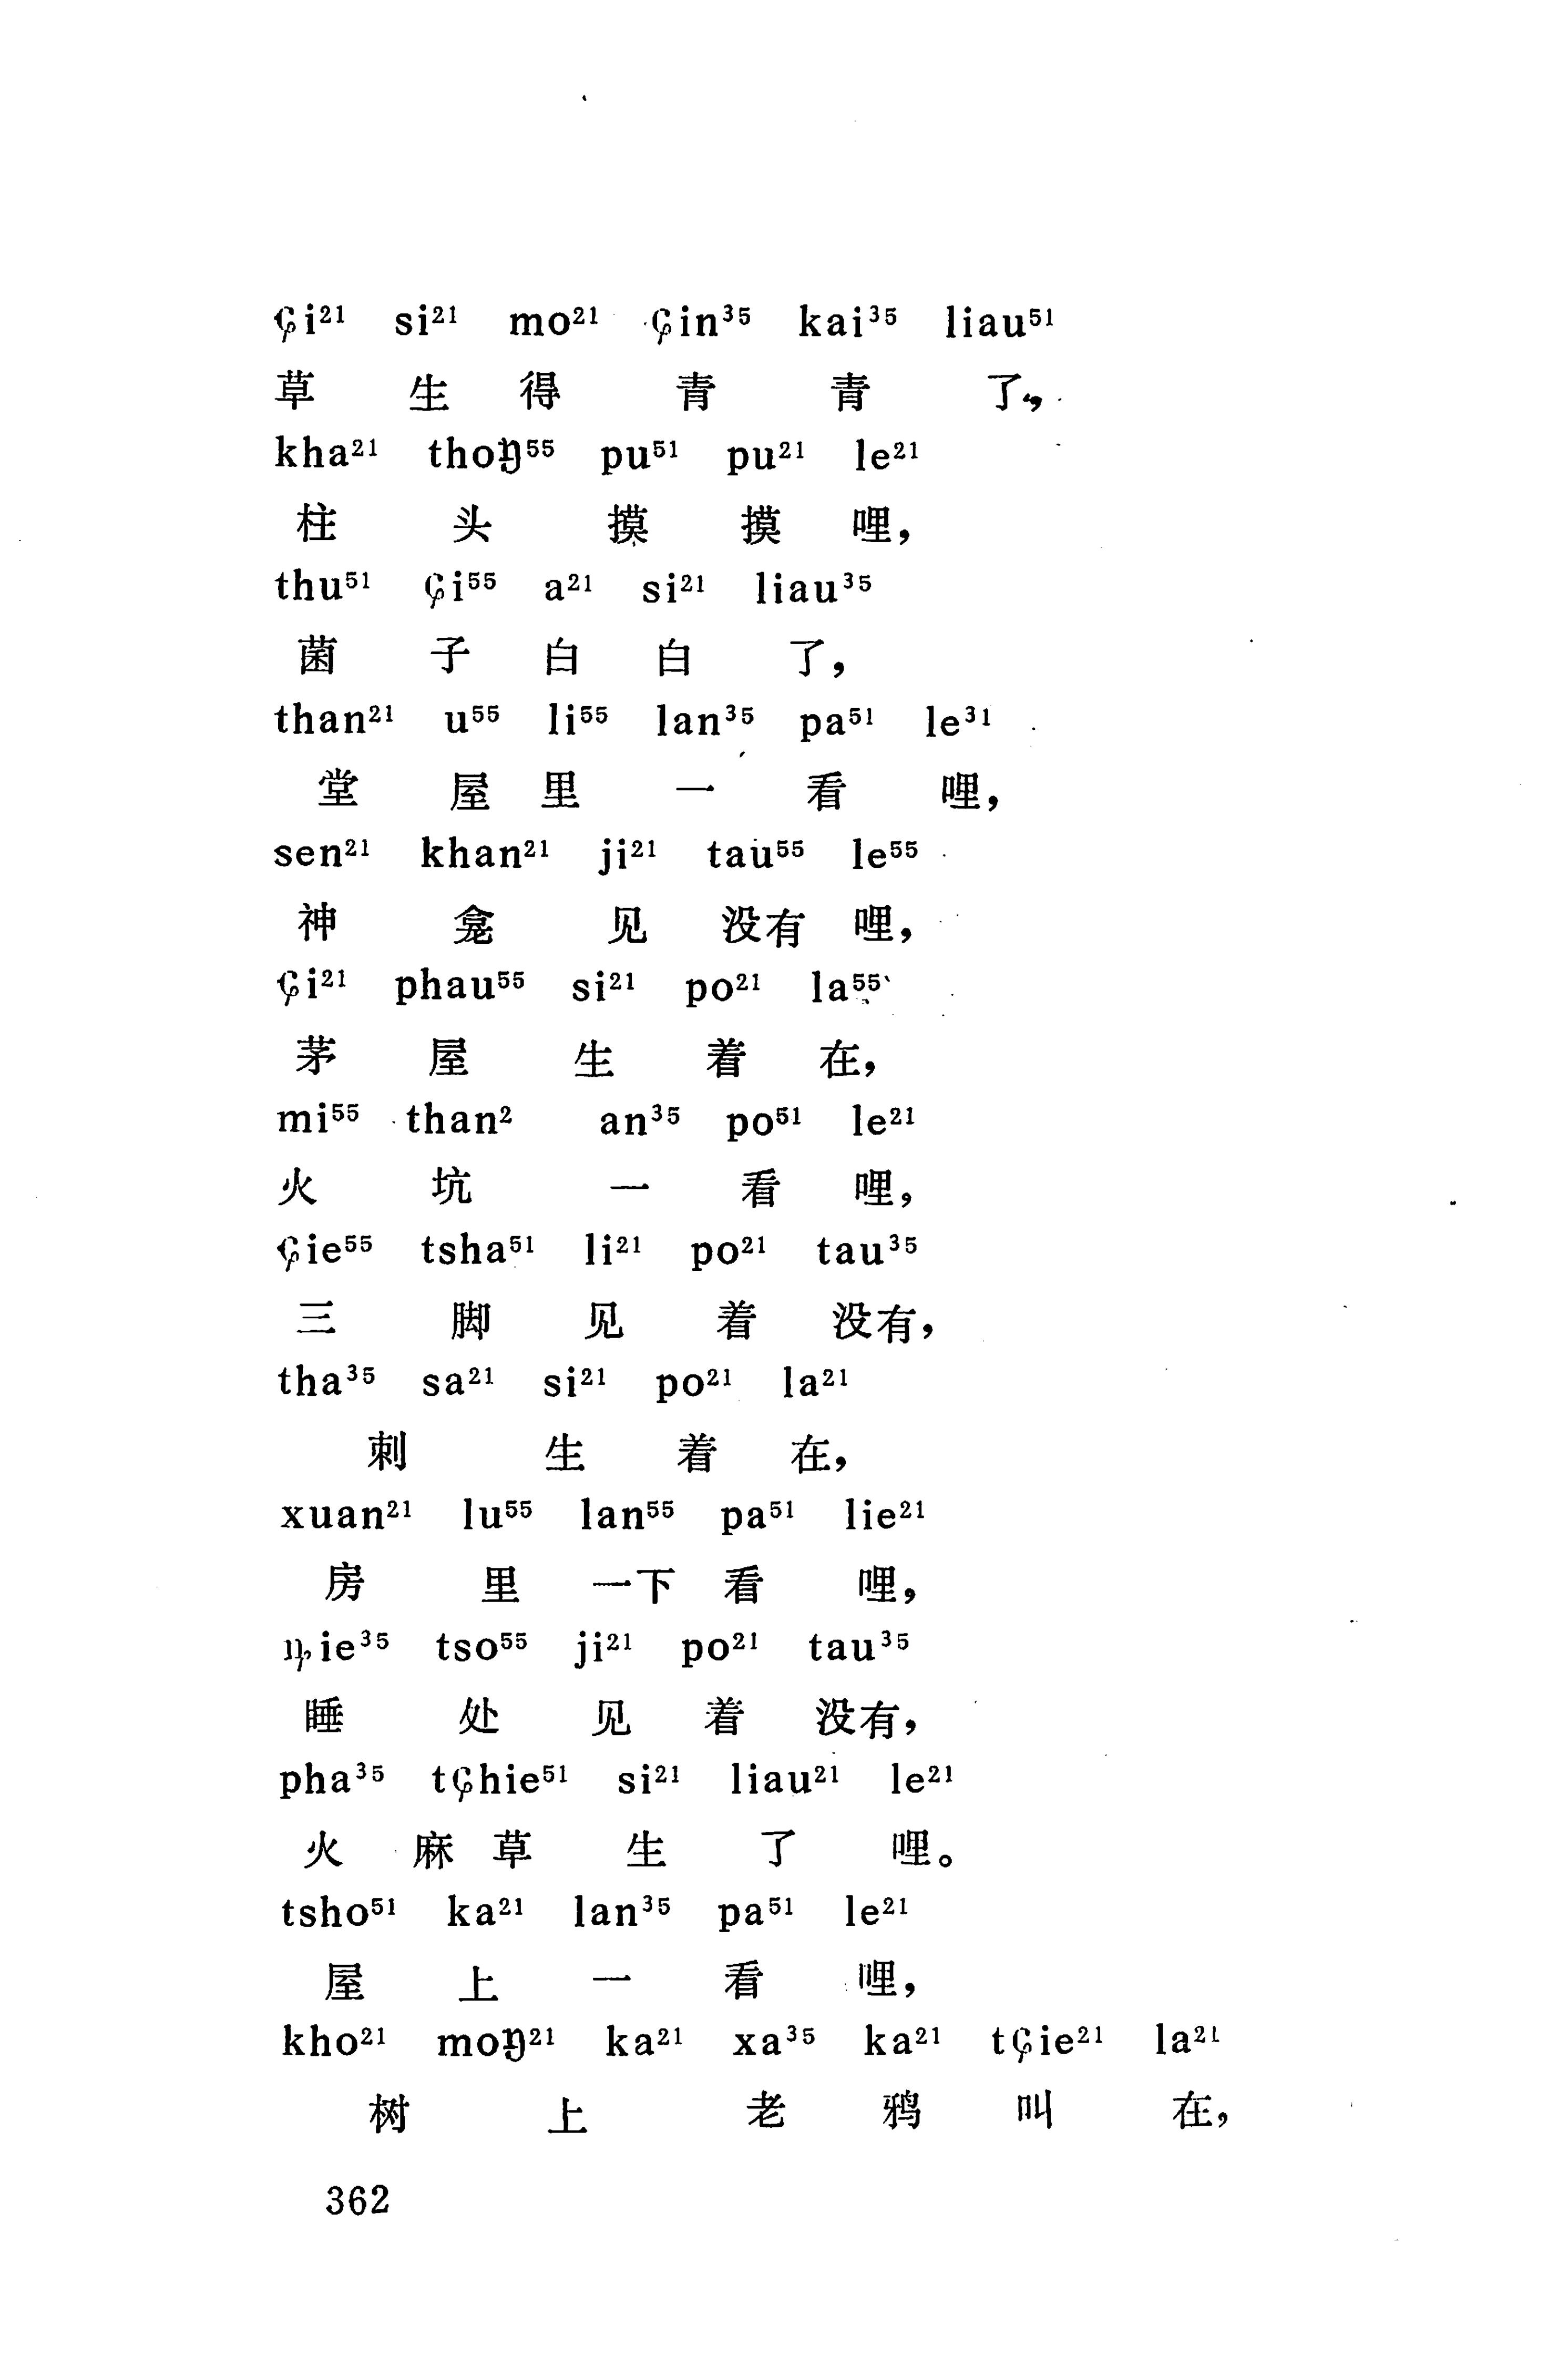 ɕi²¹ si²¹ mo²¹ ɕin³⁵ kai³⁵ liau⁵¹
草 生 得 青 青 了，
kha²¹ thoŋ⁵⁵ pu⁵¹ pu²¹ le²¹
柱 头 摸 摸 哩，
thu⁵¹ ɕi⁵⁵ a²¹ si²¹ liau³⁵
菌 子 白 白 了，
than²¹ u⁵⁵ li⁵⁵ lan³⁵ pa⁵¹ le³¹
堂 屋 里 一 看 哩，
sen²¹ khan²¹ ji²¹ tau⁵⁵ le⁵⁵
神 龛 见 没有 哩，
ɕi²¹ phau⁵⁵ si²¹ po²¹ la⁵⁵
茅 屋 生 着 在，
mi⁵⁵ than² an³⁵ po⁵¹ le²¹
火 坑 一 看 哩，
ɕie⁵⁵ tsha⁵¹ li²¹ po²¹ tau³⁵
三 脚 见 着 没有，
tha³⁵ sa²¹ si²¹ po²¹ la²¹
刺 生 着 在，
xuan²¹ lu⁵⁵ lan⁵⁵ pa⁵¹ lie²¹
房 里 一下 看 哩，
ȵie³⁵ tso⁵⁵ ji²¹ po²¹ tau³⁵
睡 处 见 着 没有，
pha³⁵ tɕhie⁵¹ si²¹ liau²¹ le²¹
火 麻 草 生 了 哩。
tsho⁵¹ ka²¹ lan³⁵ pa⁵¹ le²¹
屋 上 一 看 哩，
kho²¹ moŋ²¹ ka²¹ xa³⁵ ka²¹ tɕie²¹ la²¹
树 上 老 鸦 叫 在，
362